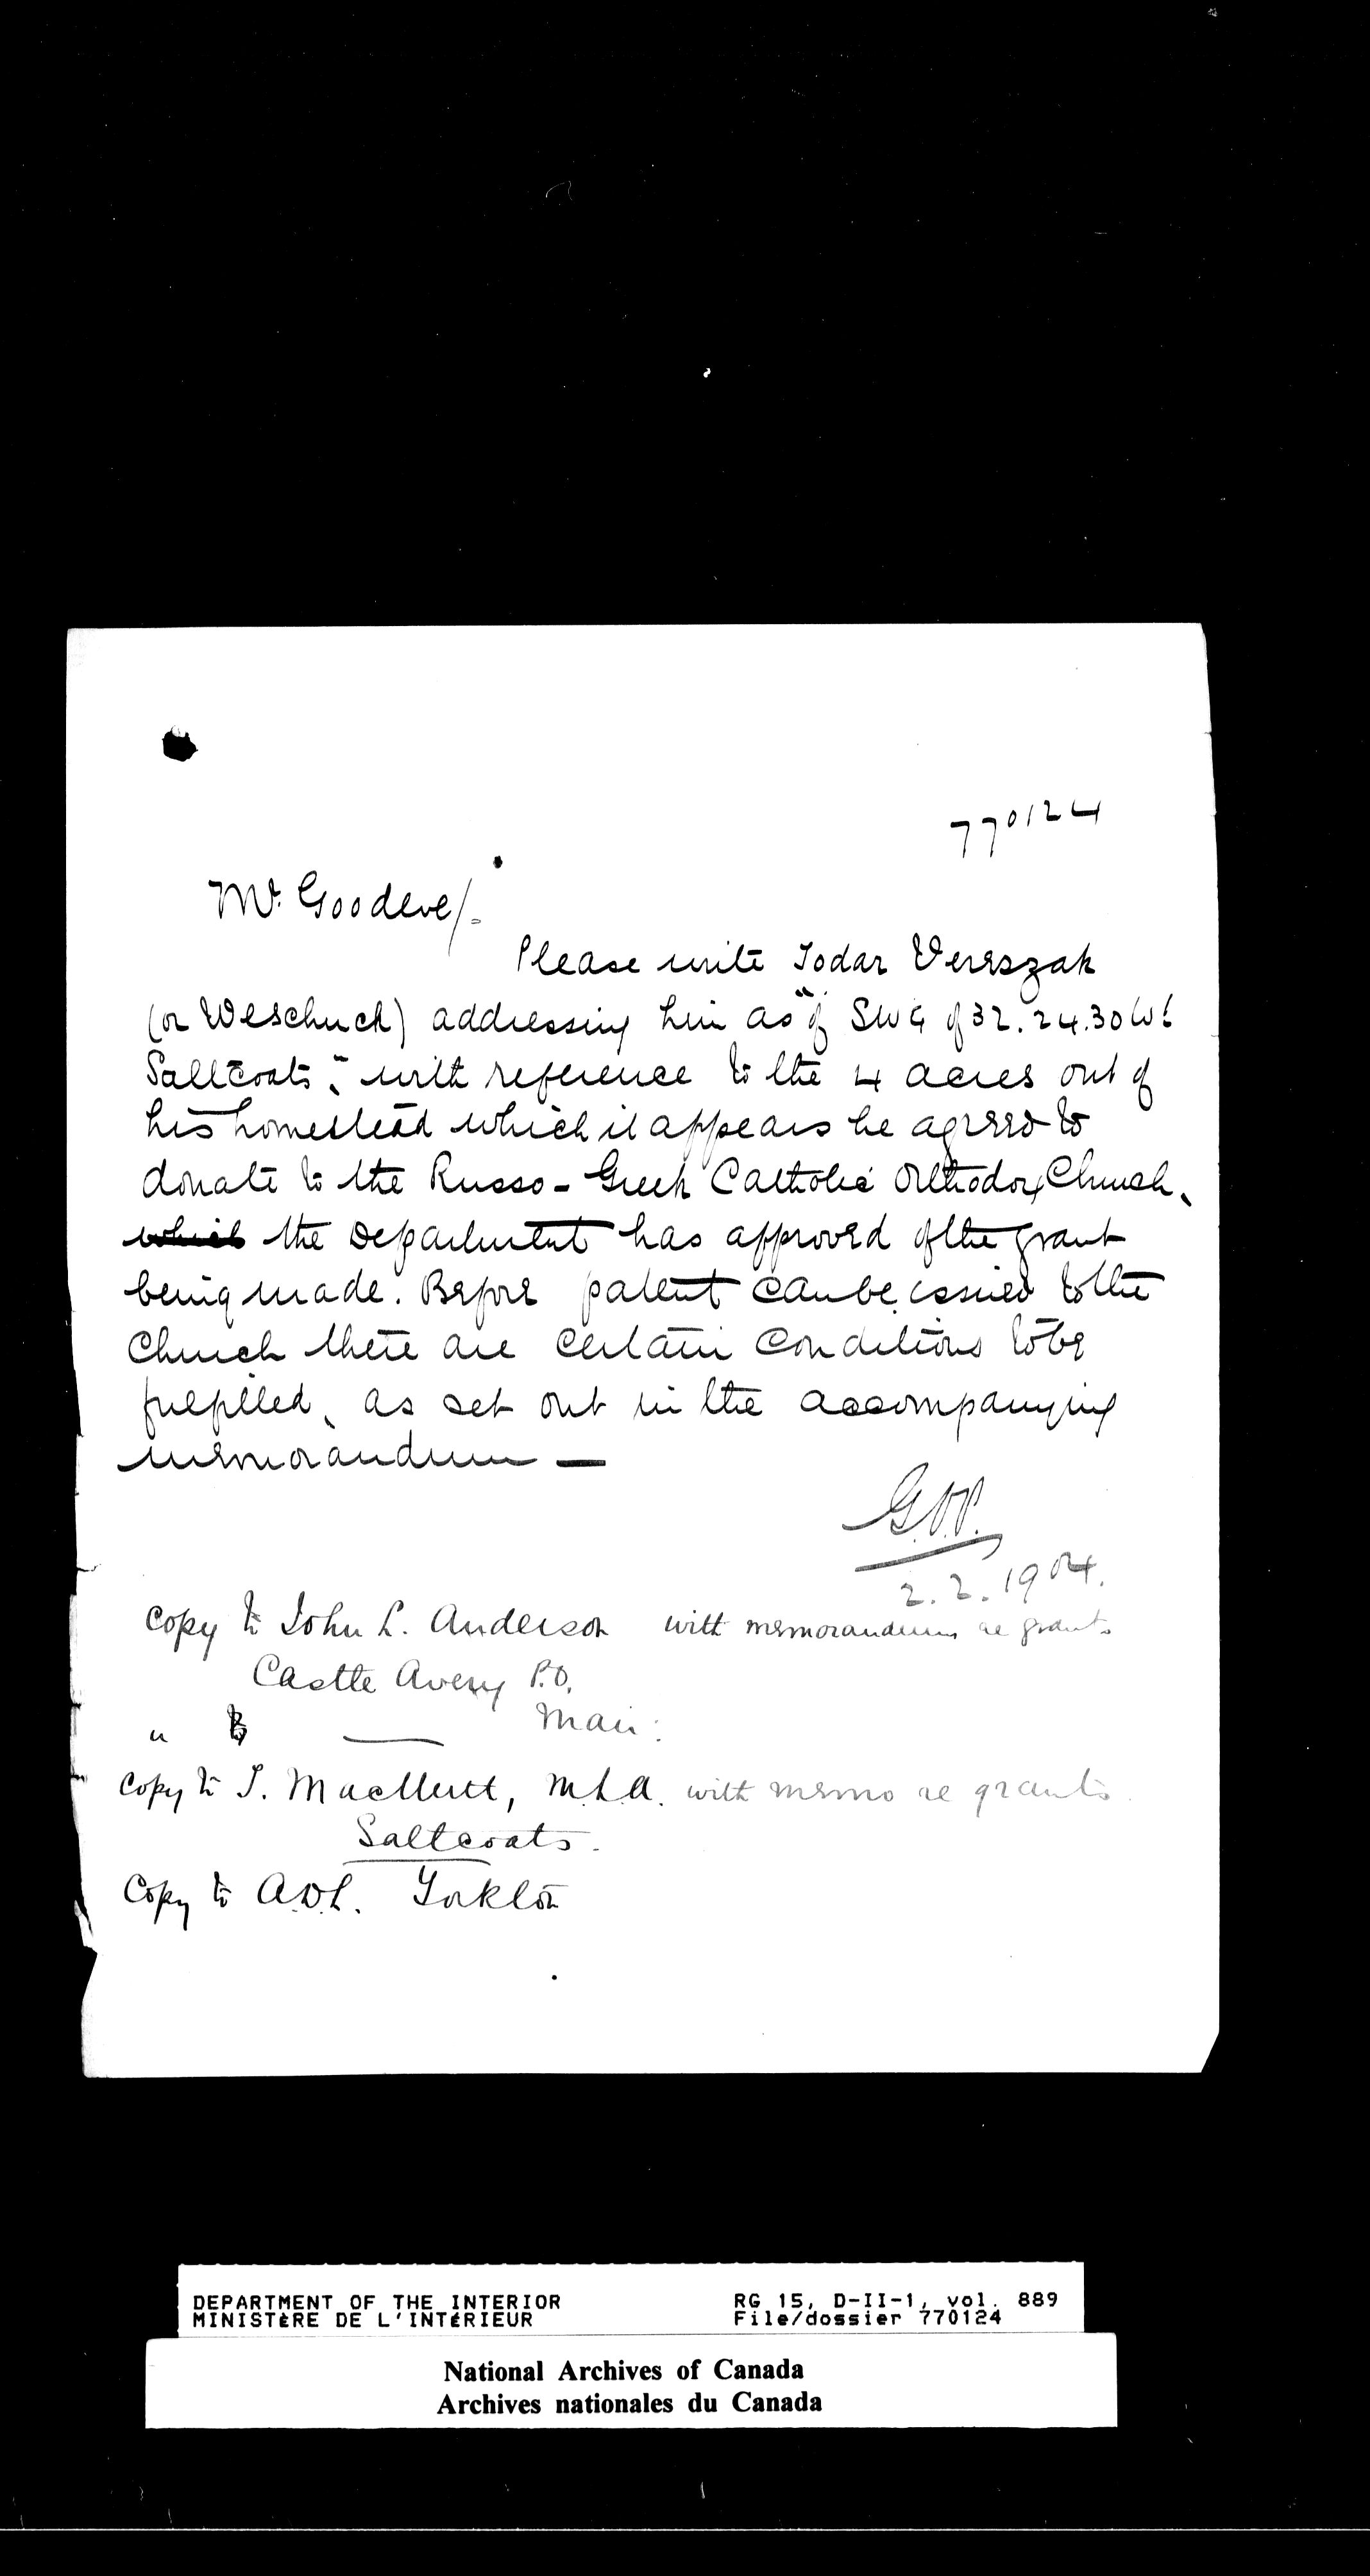 770124
Mr. Goodeve/-
Please write Todar Vereszak
(or Weschuck) addressing him as "of SW¼ of 32.24.30 W1
Saltcoats", with reference to the 4 acres out of
his homestead which it appears he agreed to
donate to the Russo-Greek Catholic Orthodox Church,
which the Department has approved of the grant
being made. Before patent can be issued to the
Church there are certain conditions to be
fulfilled, as set out in the accompanying
memorandum —
2.2.1904.
Copy to John L. Anderson with memorandum re grants
Castle Avery P.O.
" to — Man:
Copy to T. MacNutt, M.L.A. with memo re grants.
Saltcoats.
Copy to A.D.L. Yorkton
DEPARTMENT OF THE INTERIOR RG 15, D-II-1, vol. 889
MINISTÈRE DE L'INTÉRIEUR File/dossier 770124
National Archives of Canada
Archives nationales du Canada